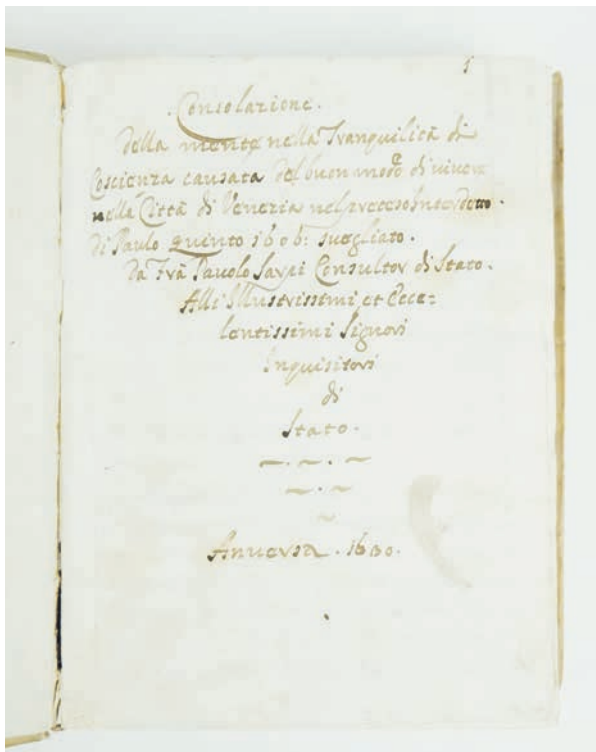 1
.Consolazione.
Della mente nella Tranquilità di
Coscienza causata del buon modo di vivere
nella Città di Venezia nel preceso Interdetto.
Di Paulo quinto 1606: suegliato.
Da Frà Pauolo Sarpi Consultor di Stato.
Alli Illustrissimi et Ecce=
lentissimi Signori
Inquisitori
di
Stato.
Anuersa. 1600.